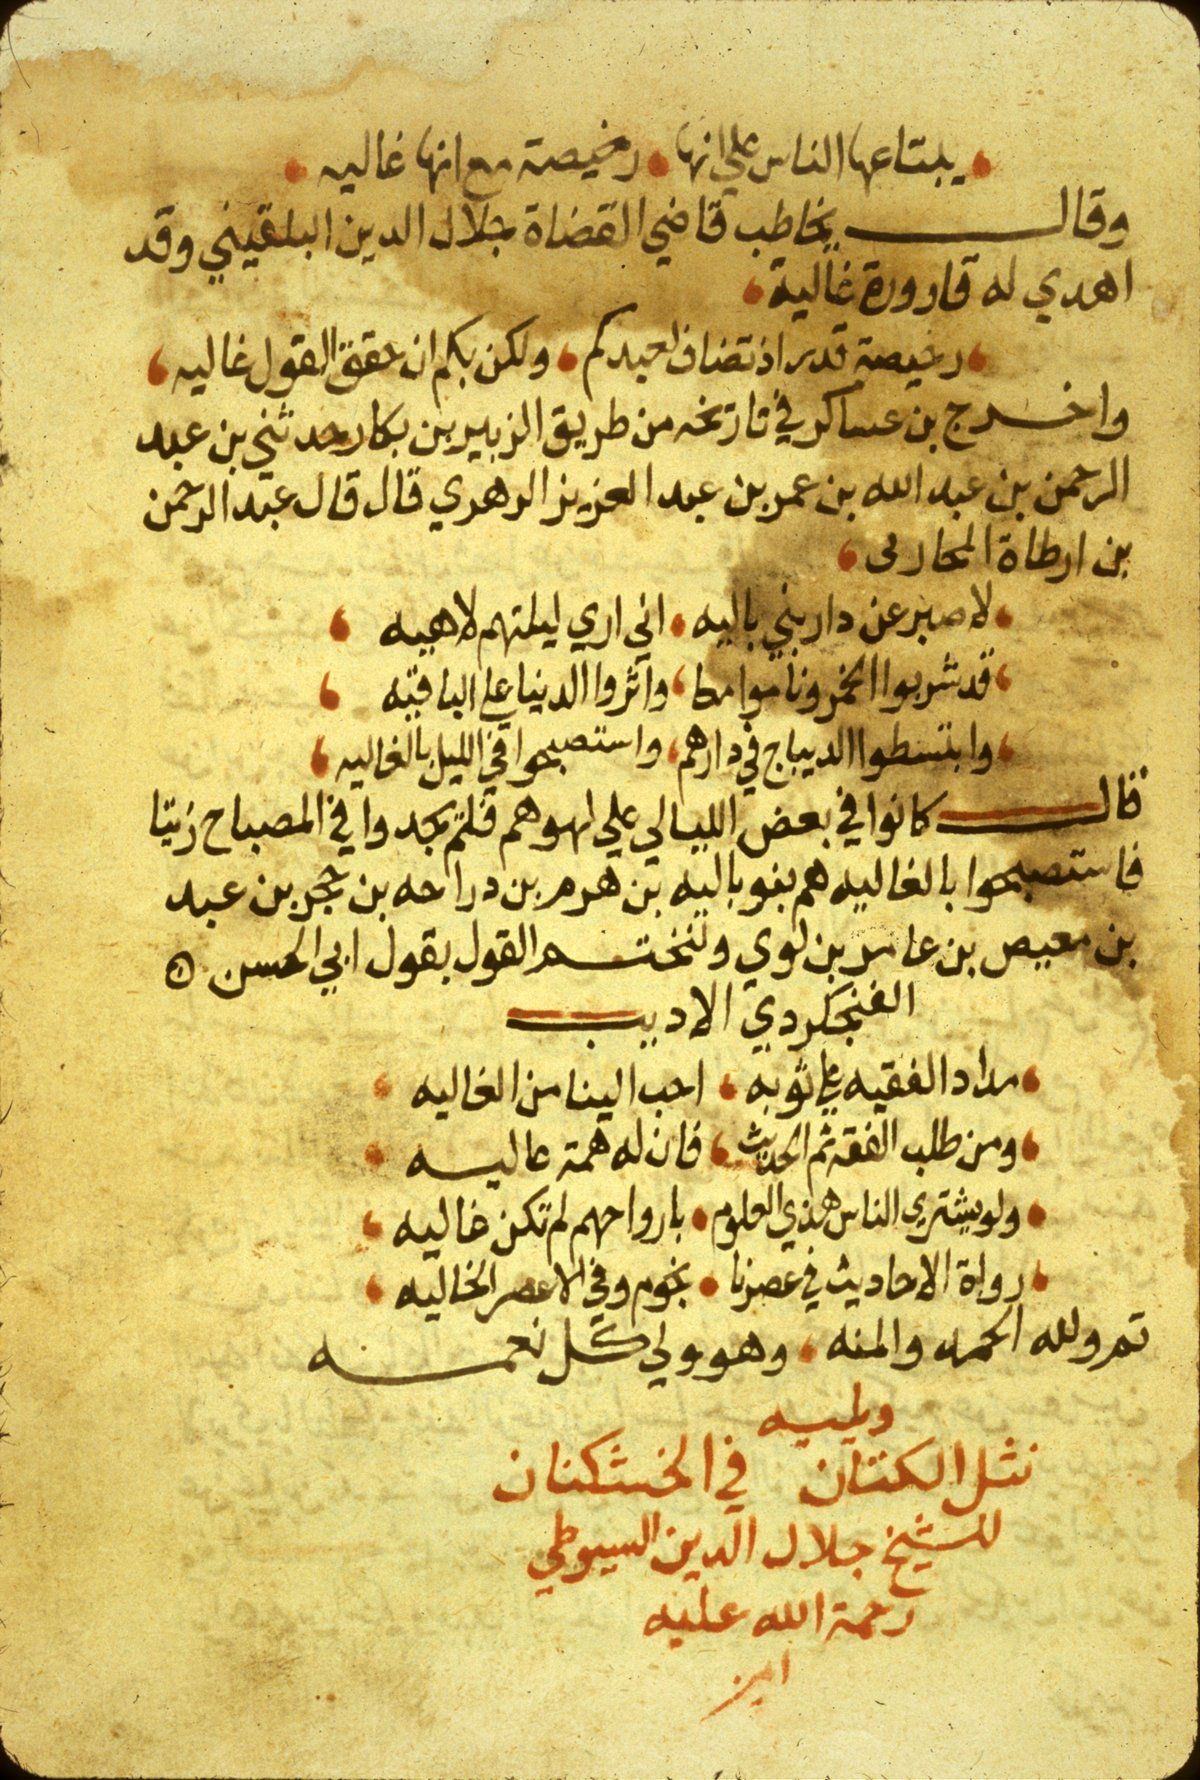 يبتاعها الناس علي انها رخيصة مع انها غاليه
وقال يخاطب قاضي القضاة جلال الدين البلقيني وقد
اهدي له قارورة غالية
رخيصة قدر اذ تضاف لعبدكم ولكن بكم ان حقق القول غاليه
واخرج بن عساكر في تاريخه من طريق الزبير بن بكار حدثني بن عبد
الرحمن بن عبد الله بن عمر بن عبد العزيز الزهري قال قال عبد الرحمن
بن ارطاة المحاربى
لا صبر عن دار بني باليه اني اري ليلتهم لاهيه
قد شربوا الخمر وناموا معا واثروا الدنيا على الباقيه
وابتسطوا الديباج في دارهم واستصبحوا في الليل بالغاليه
قال كانوا في بعض الليالي علي لهوهم فلم يجدوا في المصباح زيتا
فاستصبحوا بالغاليه هم بنو باليه بن هرم بن رواحه بن حجر بن عبد
بن معيص بن عامر بن لوي ولنختم القول بقول ابي الحسن
الفنجكردي الاديب
مداد الفقيه علي ثوبه احب الينا من الغاليه
ومن طلب الفقه ثم الحديث فان له همة عاليه
ولو يشتري الناس هذي العلوم بارواحهم لم تكن غاليه
رواة الاحاديث في عصرنا نجوم وفي الاعصر الخاليه
تم ولله الحمد والمنه وهو ولي كل نعمه
ويليه
نثل الكنتان في الخشكنان
للشيخ جلال الدين السيوطي
رحمة الله عليه
امين